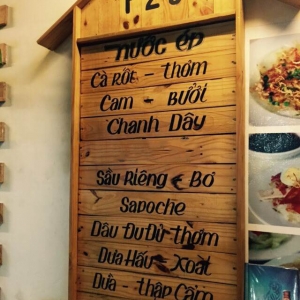 NƯỚC ÉP
CÀ RỐT - THƠM
CAM - BƯỞI
CHANH DÂY
SẦU RIÊNG - BƠ
SAPOCHE
DÂU ĐU ĐỦ - THƠM
DƯA HẤU - XOÀI
DỪA - THẬP CẨM